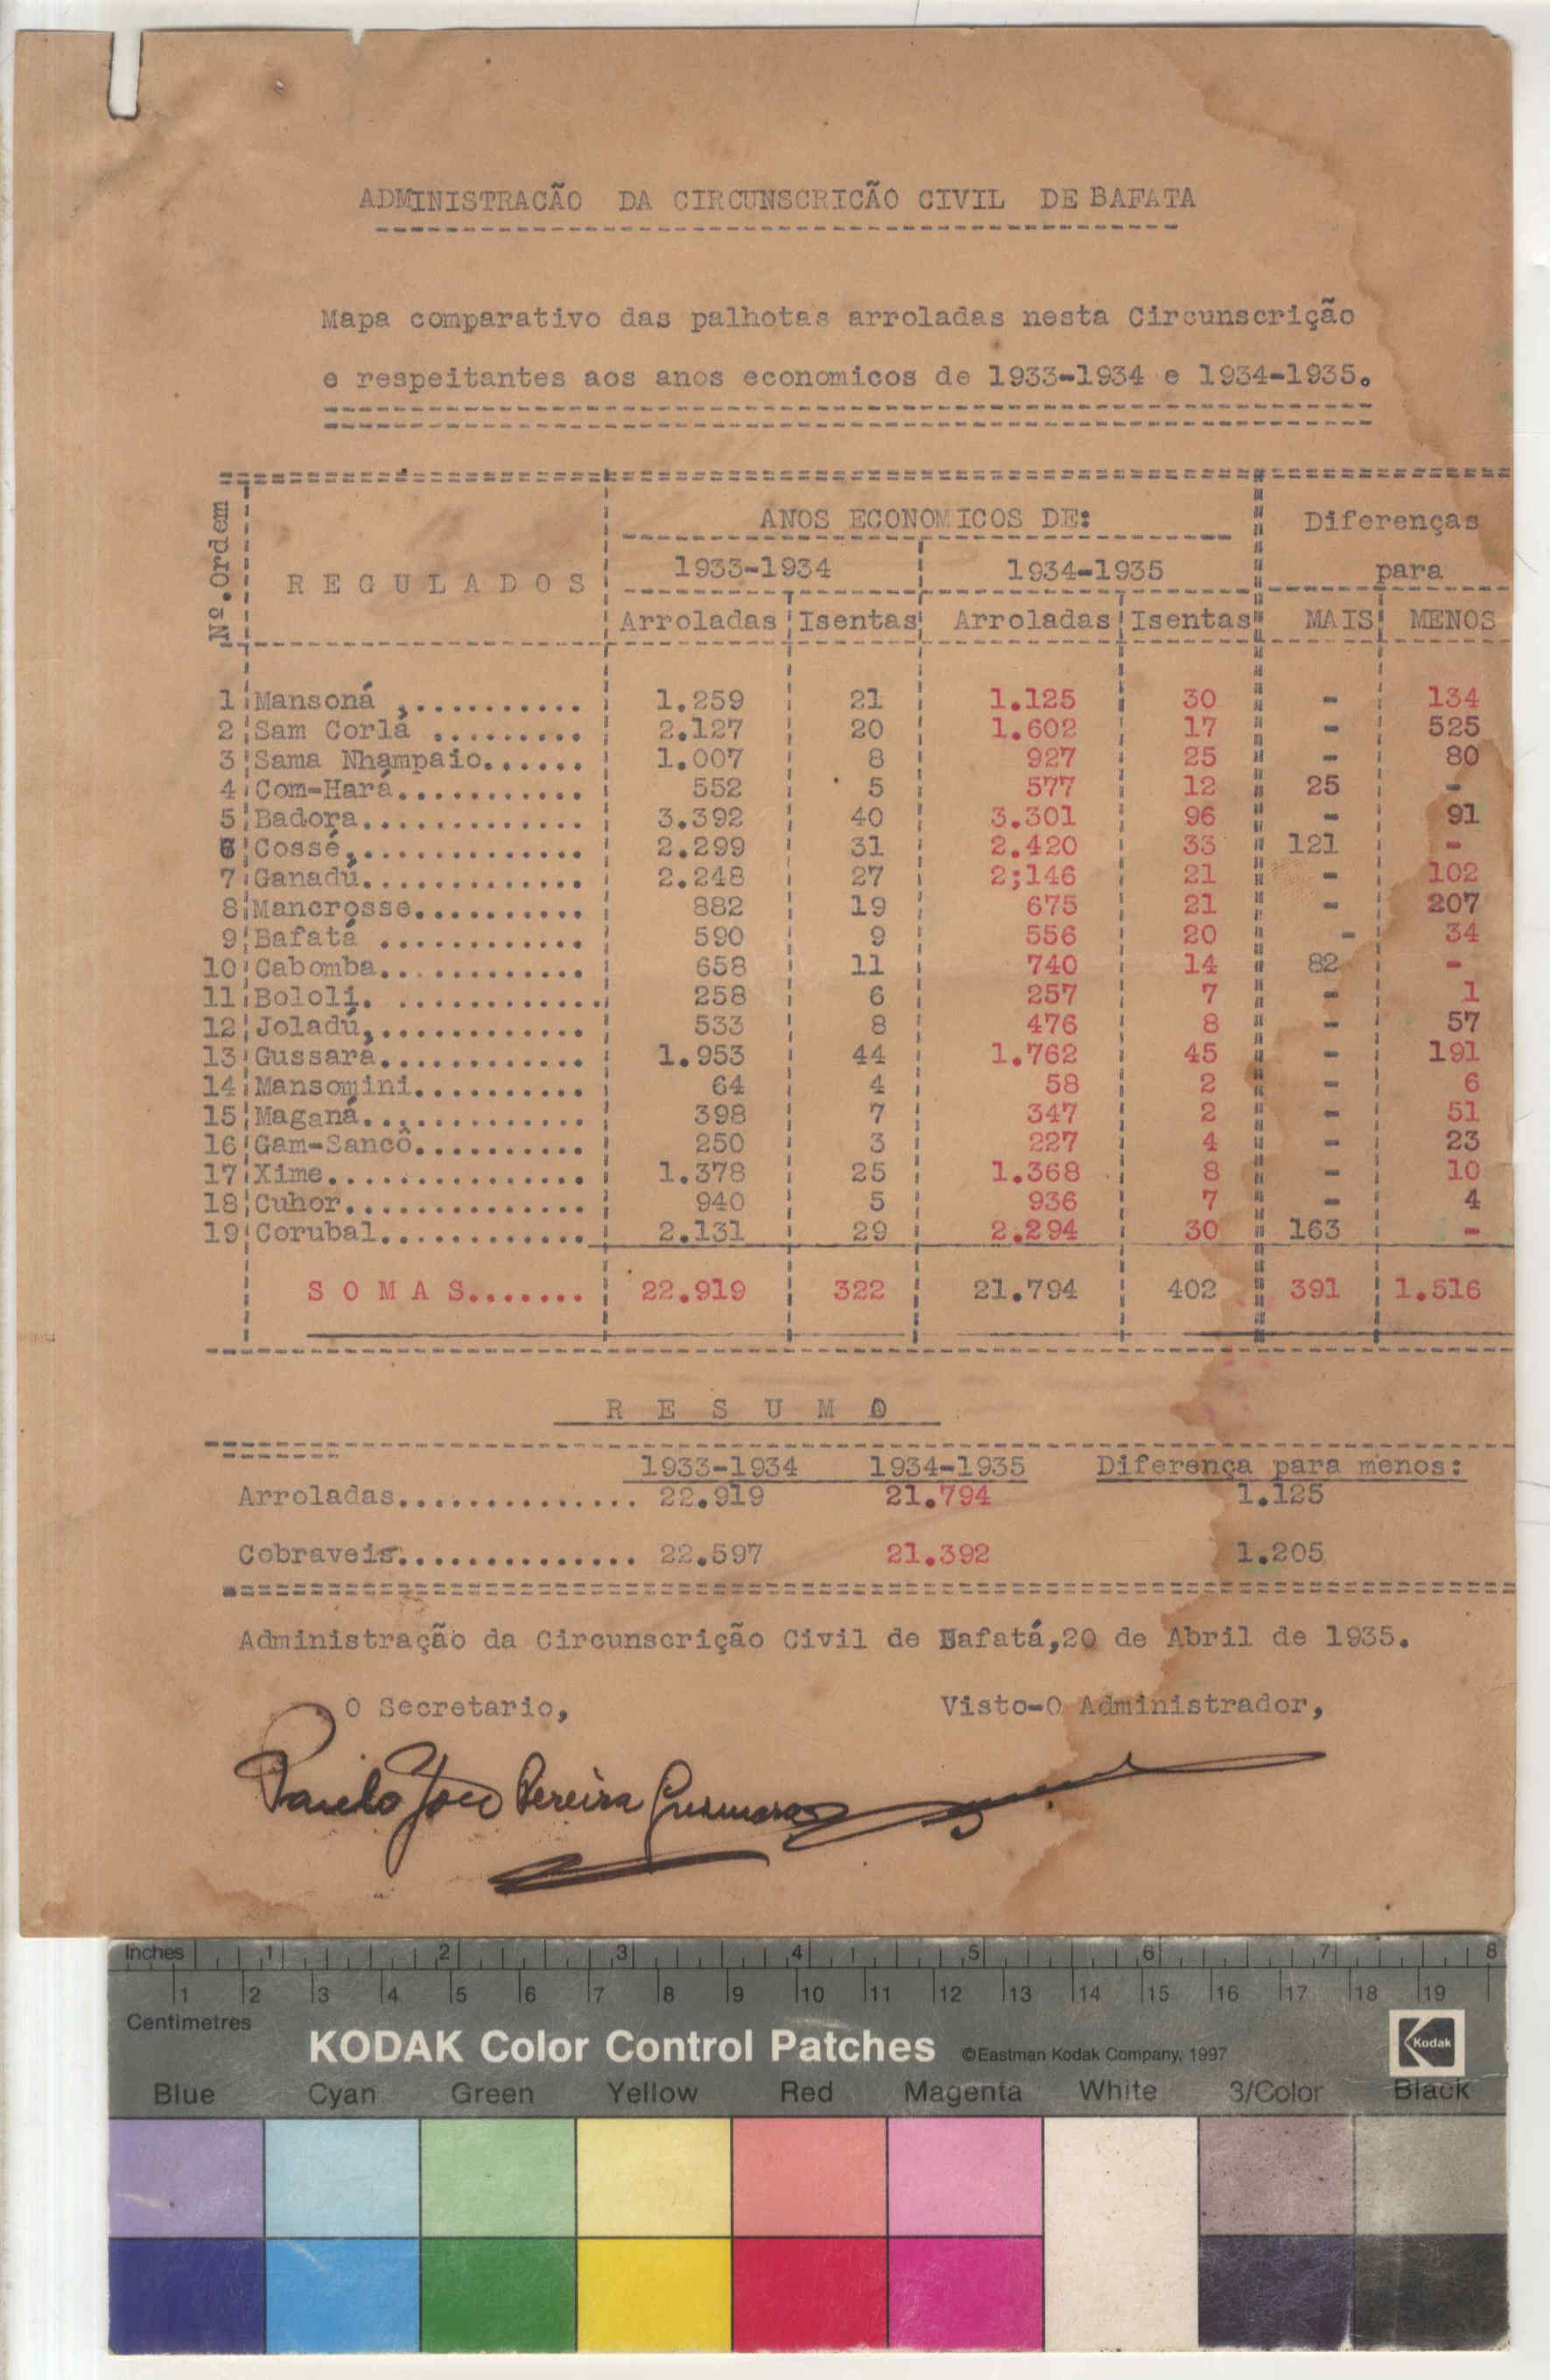 ADMINISTRACÃO DA CIRCUNSCRICÃO CIVIL DE BAFATA
Mapa comparativo das palhotas arroladas nesta Circunscrição
e respeitantes aos anos economicos de 1933-1934 e 1934-1935.
Nº.Ordem
REGULADOS
ANOS ECONOMICOS DE:
Diferenças
1933-1934 1934-1935 para
Arroladas Isentas Arroladas Isentas MAIS MENOS
1 Mansoná ,.......... 1.259 21 1.125 30 - 134
2 Sam Corlá ......... 2.127 20 1.602 17 - 525
3 Sama Nhampaio...... 1.007 8 927 25 - 80
4 Com-Hará........... 552 5 577 12 25 -
5 Badora............. 3.392 40 3.301 96 - 91
6 Cossé,............. 2.299 31 2.420 33 121 -
7 Ganadú............. 2.248 27 2;146 21 - 102
8 Mancrosse.......... 882 19 675 21 - 207
9 Bafatá ............ 590 9 556 20 - 34
10 Cabomba............ 658 11 740 14 82 -
11 Bololi. ............ 258 6 257 7 - 1
12 Joladú,............ 533 8 476 8 - 57
13 Gussará............ 1.953 44 1.762 45 - 191
14 Mansomini.......... 64 4 58 2 - 6
15 Maganá............. 398 7 347 2 - 51
16 Gam-Sancô.......... 250 3 227 4 - 23
17 Xime............... 1.378 25 1.368 8 - 10
18 Cuhor.............. 940 5 936 7 - 4
19 Corubal............ 2.131 29 2.294 30 163 -
SOMAS....... 22.919 322 21.794 402 391 1.516
RESUMO
1933-1934 1934-1935 Diferença para menos:
Arroladas.............. 22.919 21.794 1.125
Cobraveis.............. 22.597 21.392 1.205
Administração da Circunscrição Civil de Bafatá,20 de Abril de 1935.
O Secretario, Visto-O Administrador,
Pereira
Inches 1 2 3 4 5 6 7 8
1 2 3 4 5 6 7 8 9 10 11 12 13 14 15 16 17 18 19
Centimetres
KODAK Color Control Patches ©Eastman Kodak Company, 1997 Kodak
Blue Cyan Green Yellow Red Magenta White 3/Color Black